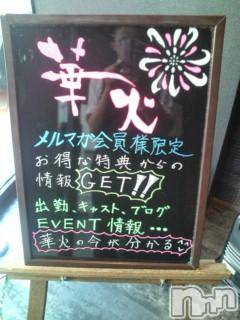 華火
メルマガ会員様限定
お得な特典からの
情報GET!!
出勤、キャスト、ブログ
EVENT情報…
華火の今が分かる